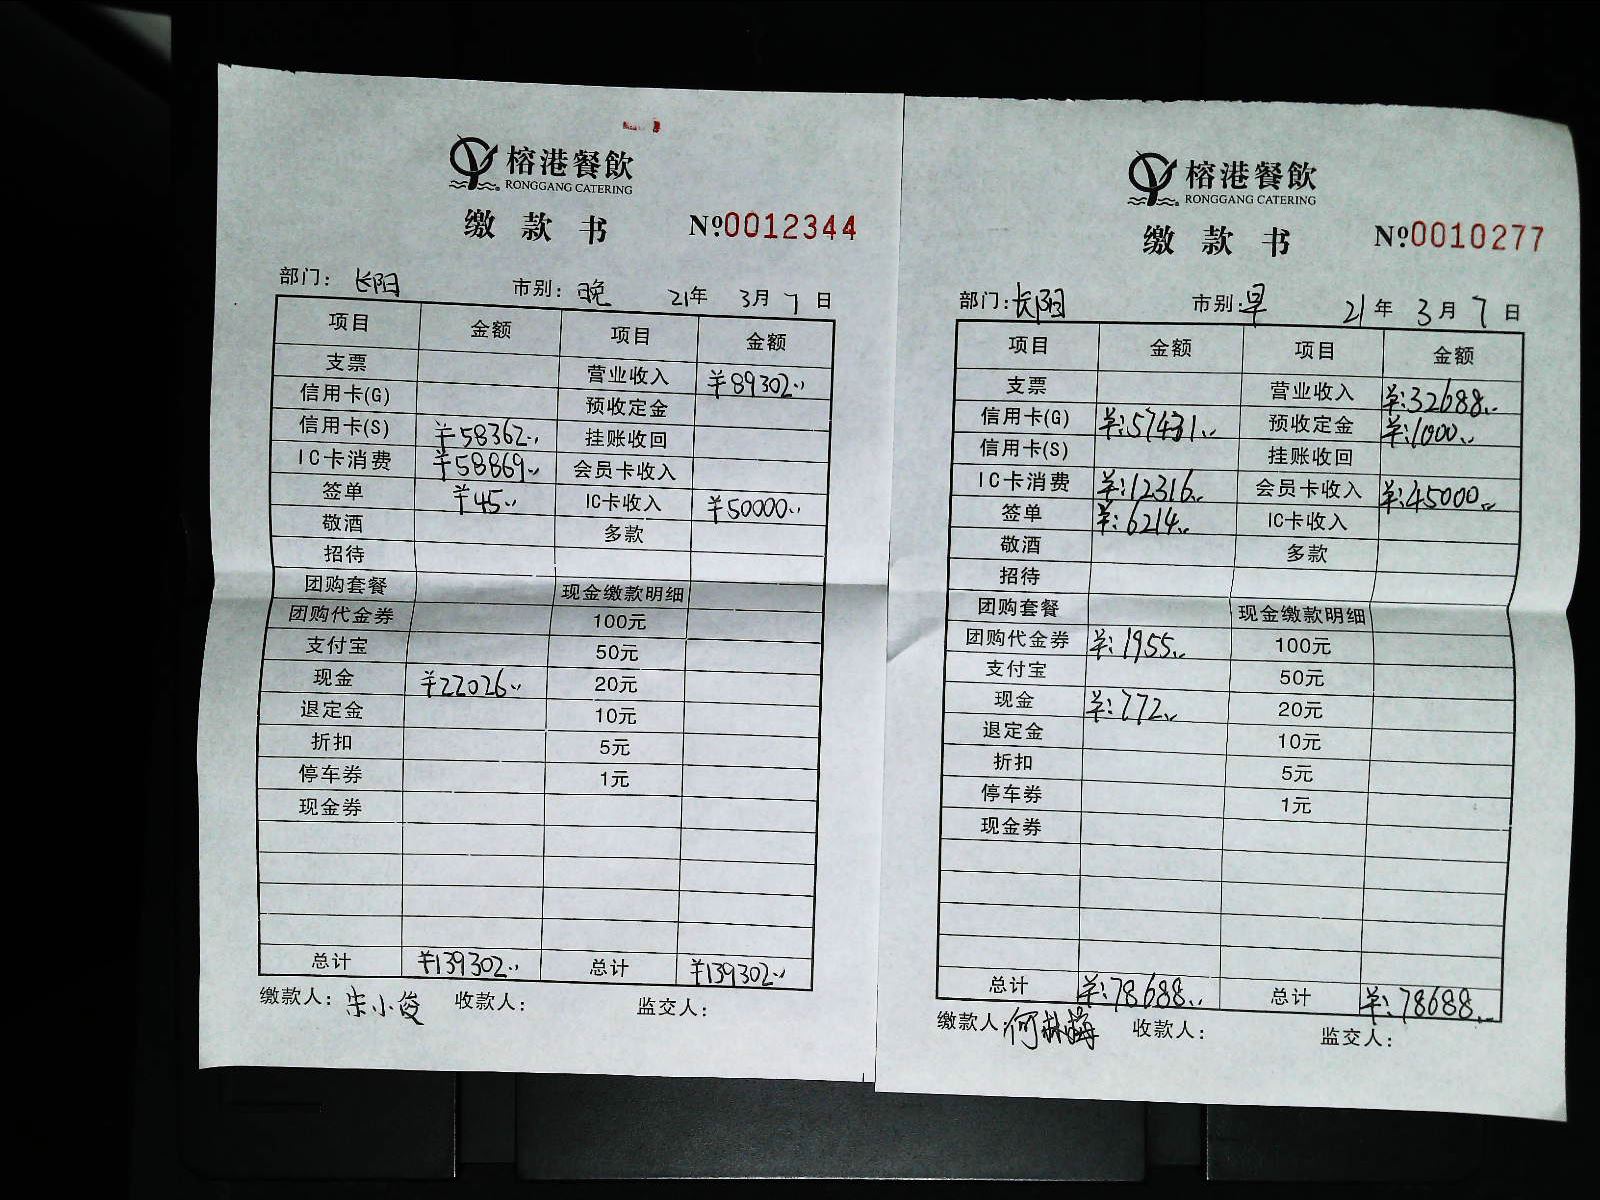 榕港餐飲
RONGGANG CATERING
缴款书 №0012344
部门: 长阳 市别: 晚 21年 3月 7日
项目 金额 项目 金额
支票 营业收入 ¥89302..
信用卡(G) 预收定金
信用卡(S) ¥58362.. 挂账收回
IC卡消费 ¥58869.. 会员卡收入
签单 ¥45.. IC卡收入 ¥50000..
敬酒 多款
招待
团购套餐 现金缴款明细
团购代金券 100元
支付宝 50元
现金 ¥22026.. 20元
退定金 10元
折扣 5元
停车券 1元
现金券
总计 ¥139302.. 总计 ¥139302..
缴款人: 宋小俊 收款人: 监交人:
榕港餐飲
RONGGANG CATERING
缴款书 №0010277
部门: 长阳 市别: 早 21年 3月 7日
项目 金额 项目 金额
支票 营业收入 ¥:32688..
信用卡(G) ¥:57431.. 预收定金 ¥:1000..
信用卡(S) 挂账收回
IC卡消费 ¥:12316.. 会员卡收入 ¥:45000..
签单 ¥:6214.. IC卡收入
敬酒 多款
招待
团购套餐 现金缴款明细
团购代金券 ¥:1955.. 100元
支付宝 50元
现金 ¥:772.. 20元
退定金 10元
折扣 5元
停车券 1元
现金券
总计 ¥:78688.. 总计 ¥:78688..
缴款人: 何林梅 收款人: 监交人: